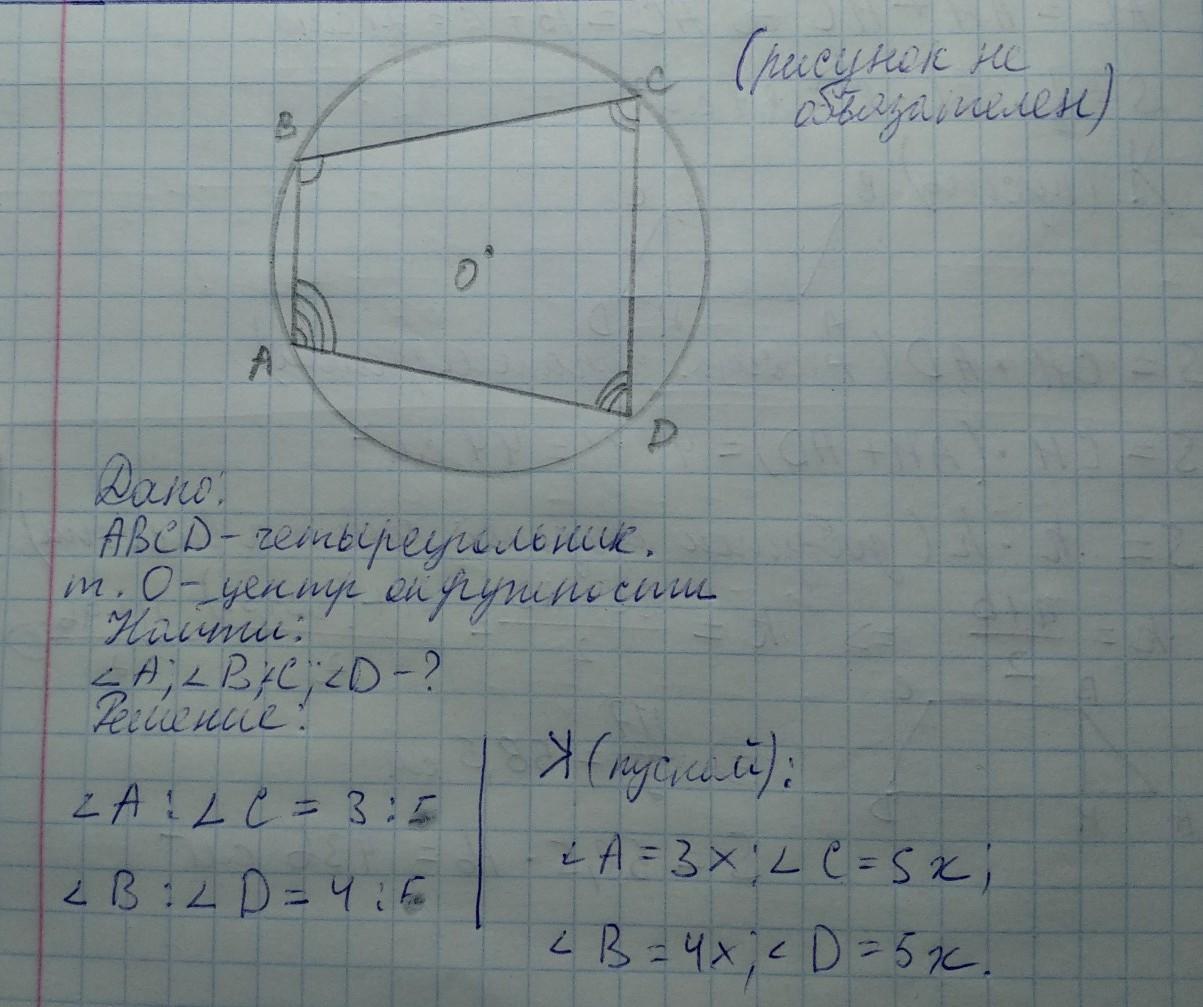 (рисунок не
обязателен)
B
C
O
A
D
Дано:
ABCD - четыреугольник.
т. O - центр окружности
Найти:
∠A; ∠B; C; ∠D - ?
Решение:
∠A : ∠C = 3 : 5
∠B : ∠D = 4 : 5
(пускай):
∠A = 3x; ∠C = 5x;
∠B = 4x; ∠D = 5x.